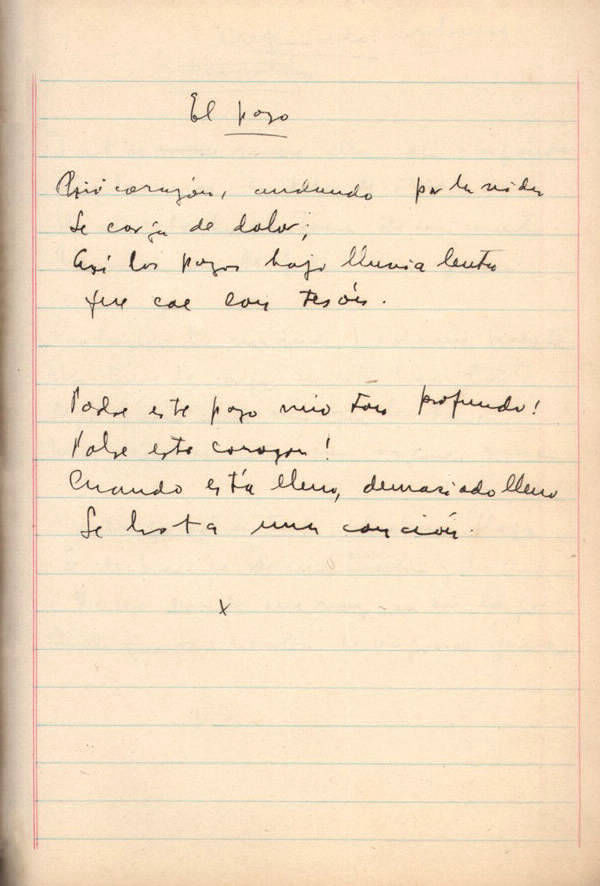 El pozo
corazón, andando por la vida
Se carga de dolor;
Así los pozos bajo lluvia lenta
que cae con tesón.
Pobre este pozo mío tan profundo!
Pobre este corazón!
Cuando está lleno, demasiado lleno
Se brota una canción.
x